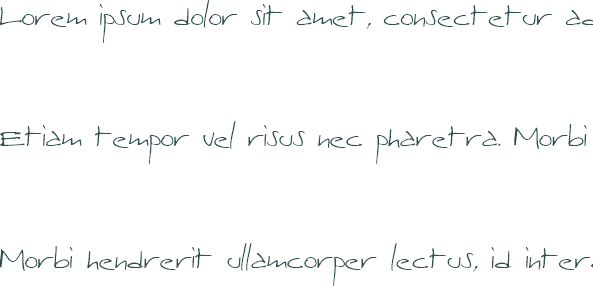 Lorem ipsum dolor sit amet, consectetur ad
Etiam tempor vel risus nec pharetra. Morbi
Morbi hendrerit ullamcorper lectus, id inter.